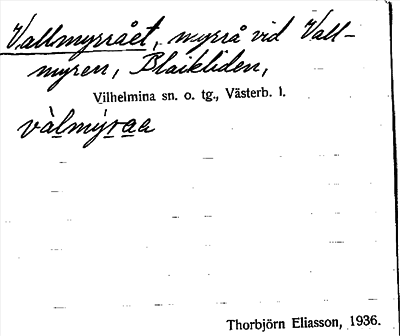 Vallmyrrået, myrrå vid Vall-
myren, Blaikliden,
Vilhelmina sn. o. tg., Västerb. l.
vàlmýraa
Thorbjörn Eliasson, 1936.